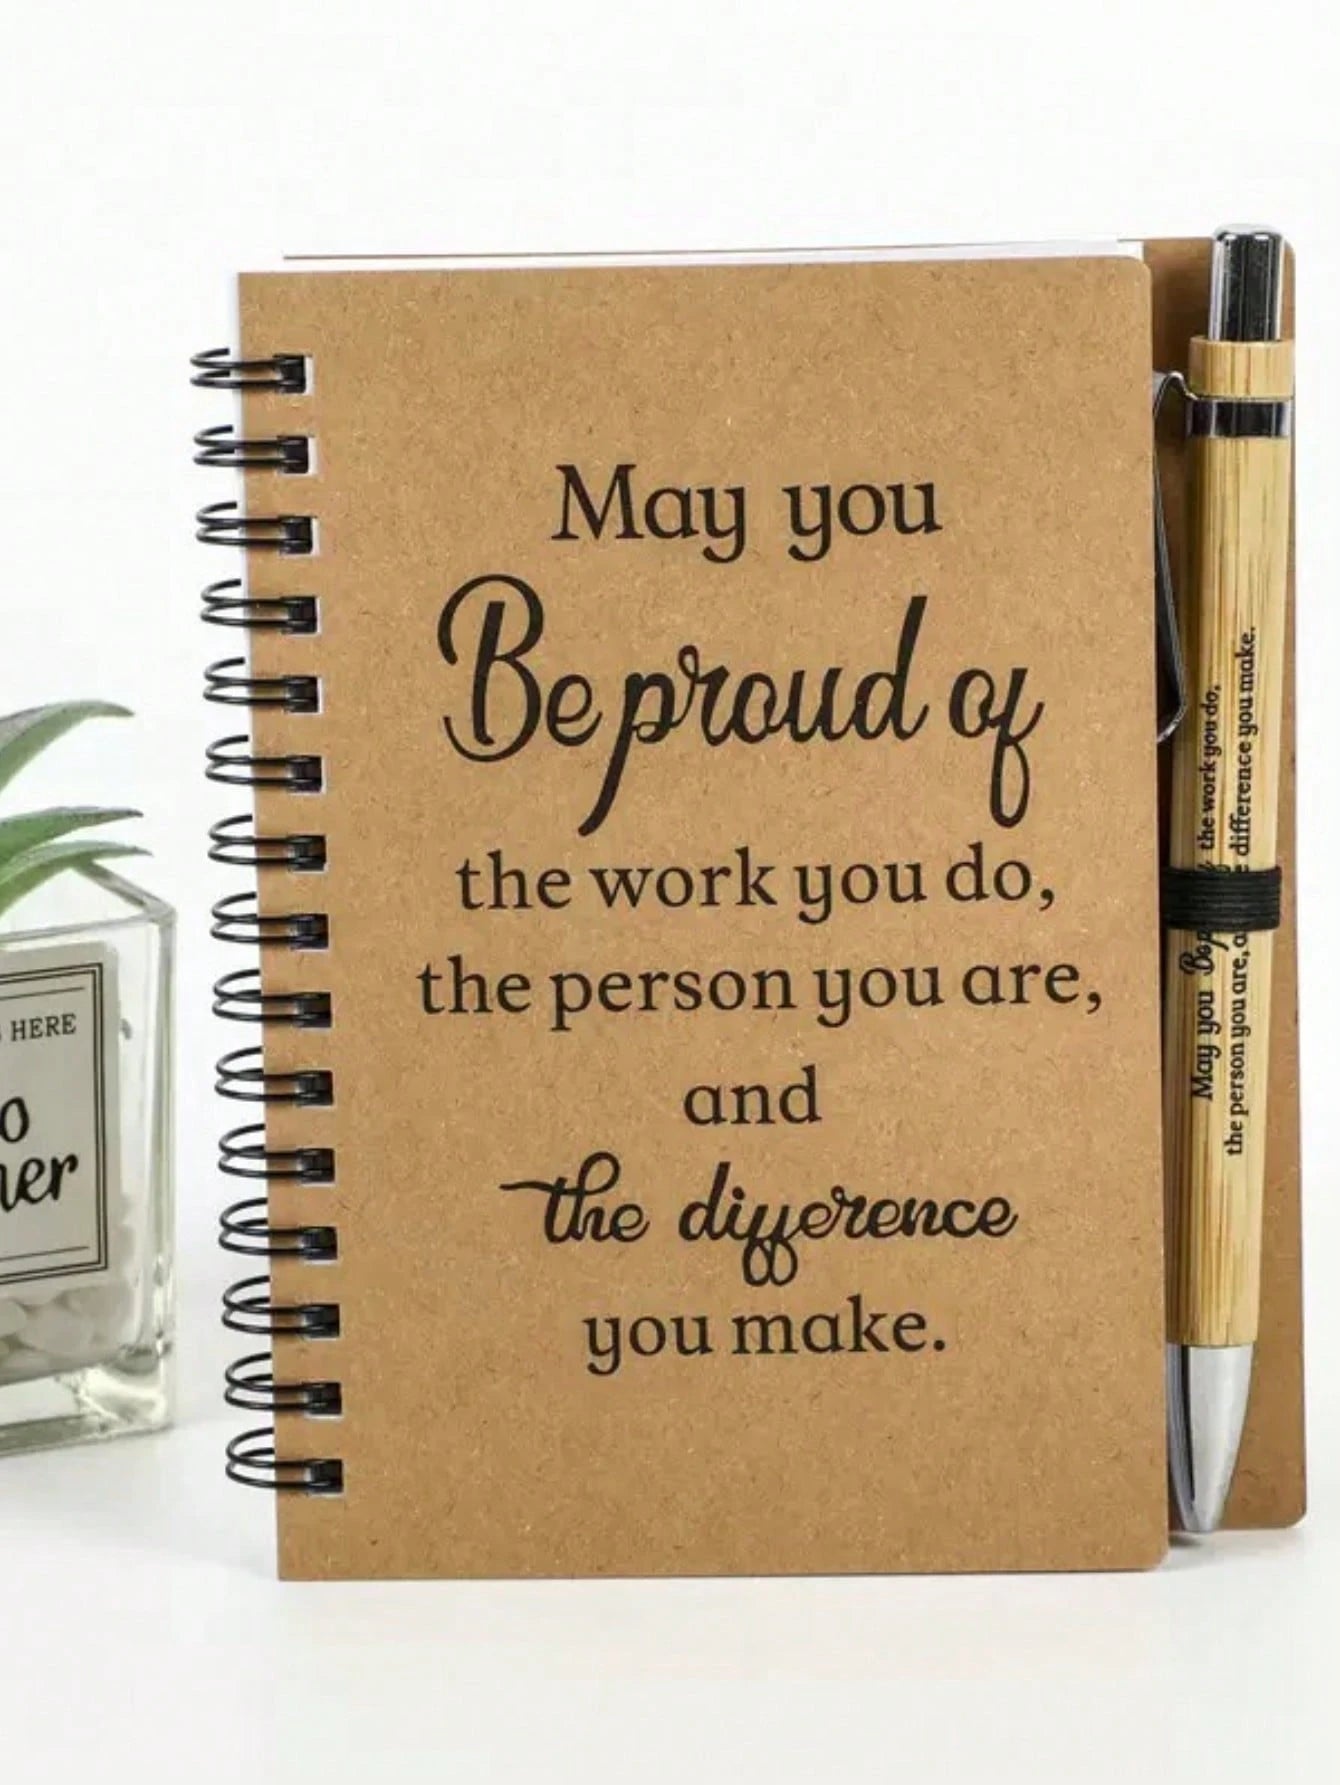 May you
Be proud of
the work you do,
the person you are,
and
the difference
you make.
May you Be the work you do,
the person you are, difference you make.
HERE